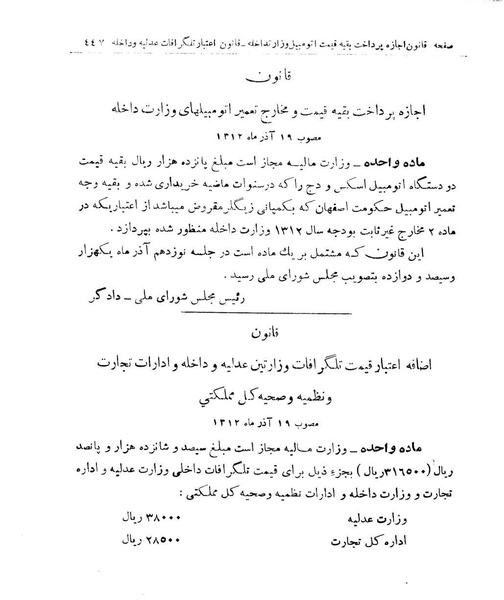 صفحه قانون اجازه پرداخت بقیه قیمت اتومبیل وزارتداخله ـ قانون اعتبار تلگرافات عدلیه وداخله ۴۴۷
قانون
اجازه پرداخت بقیه قیمت و مخارج تعمیر اتومبیلهای وزارت داخله
مصوب ۱۹ آذر ماه ۱۳۱۲
ماده واحده ـ وزارت مالیه مجاز است مبلغ پانزده هزار ریال بقیه قیمت
دو دستگاه اتومبیل اسکس و دج را که درسنوات ماضیه خریداری شده و بقیه وجه
تعمیر اتومبیل حکومت اصفهان که بکمپانی زیگلر مقروض میباشد از اعتباریکه در
ماده ۲ مخارج غیر ثابت بودجه سال ۱۳۱۲ وزارت داخله منظور شده بپردازد .
این قانون که مشتمل بر یك ماده است در جلسه نوزدهم آذر ماه یکهزار
وسیصد و دوازده بتصویب مجلس شورای ملی رسید .
رئیس مجلس شورای ملی ـ دادگر
قانون
اضافه اعتبار قیمت تلگرافات وزارتین عدلیه و داخله و ادارات تجارت
و نظمیه و صحیه کل مملکتی
مصوب ۱۹ آذر ماه ۱۳۱۲
ماده واحده ـ وزارت مالیه مجاز است مبلغ سیصد و شانزده هزار و پانصد
ریال (۳۱۶۵۰۰ریال) بجزء ذیل برای قیمت تلگرافات داخلی وزارت عدلیه و اداره
تجارت و وزارت داخله و ادارات نظمیه وصحیه کل مملکتی :
وزارت عدلیه ۳۸۰۰۰ ریال
اداره کل تجارت ۲۸۵۰۰ ریال